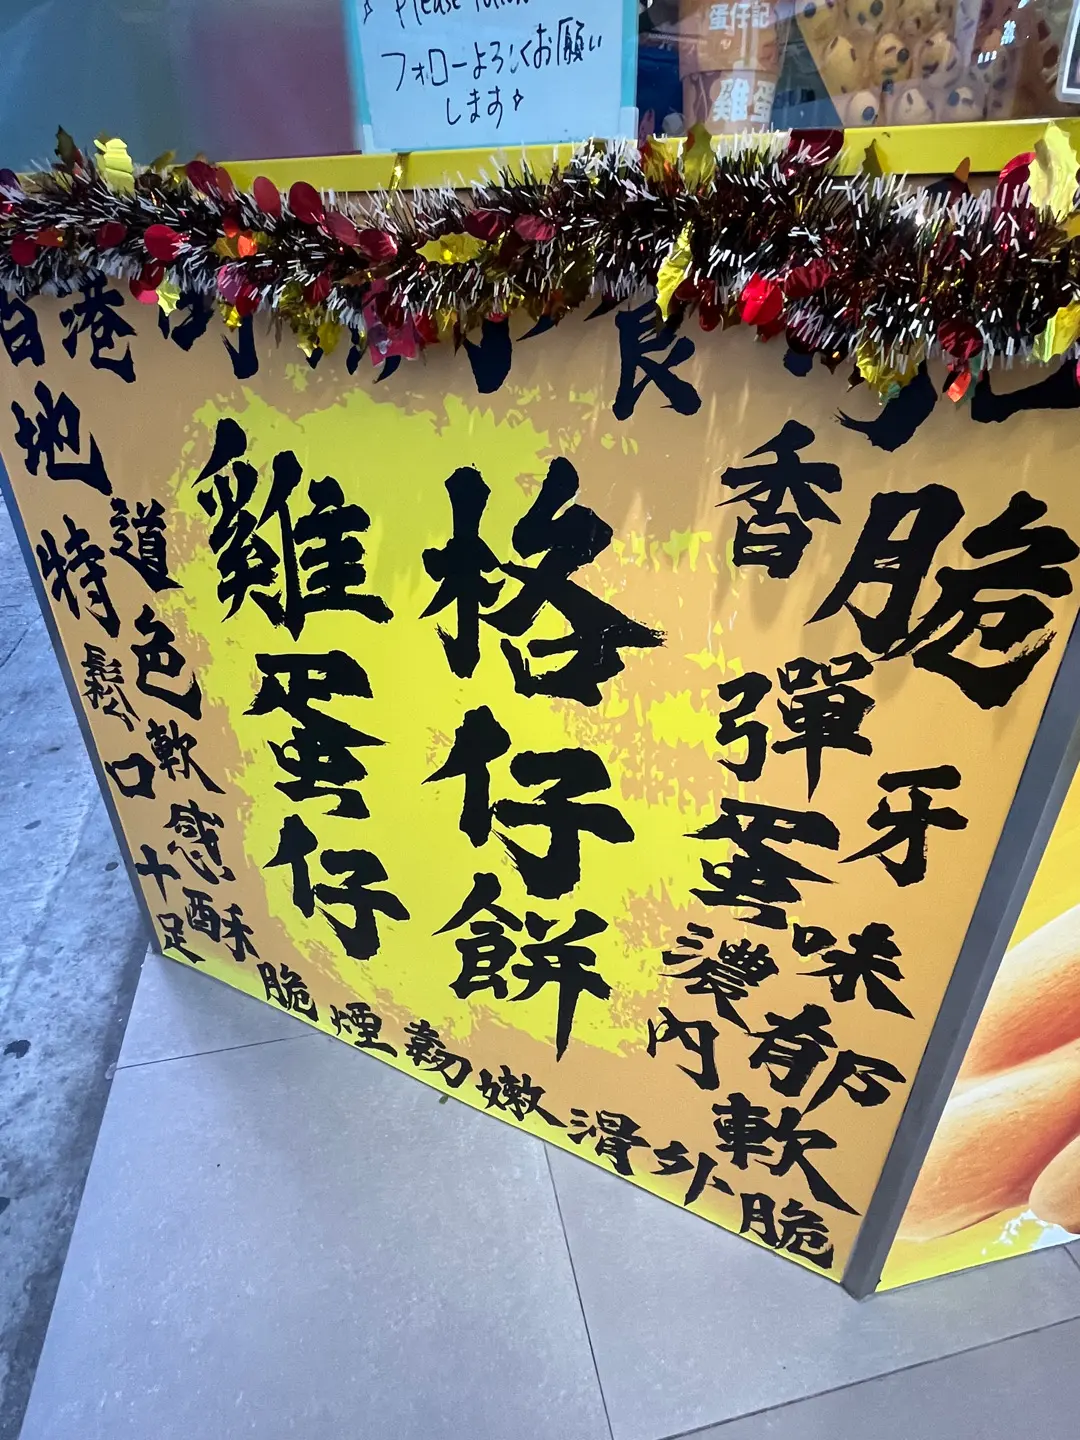 Please
フォローよろしくお願い
します
蛋仔記
雞蛋
香港
地道特色
鬆軟口感十足
酥脆煙韌嫩滑外脆內軟
雞蛋仔
格仔餅
香脆彈牙
蛋味濃郁